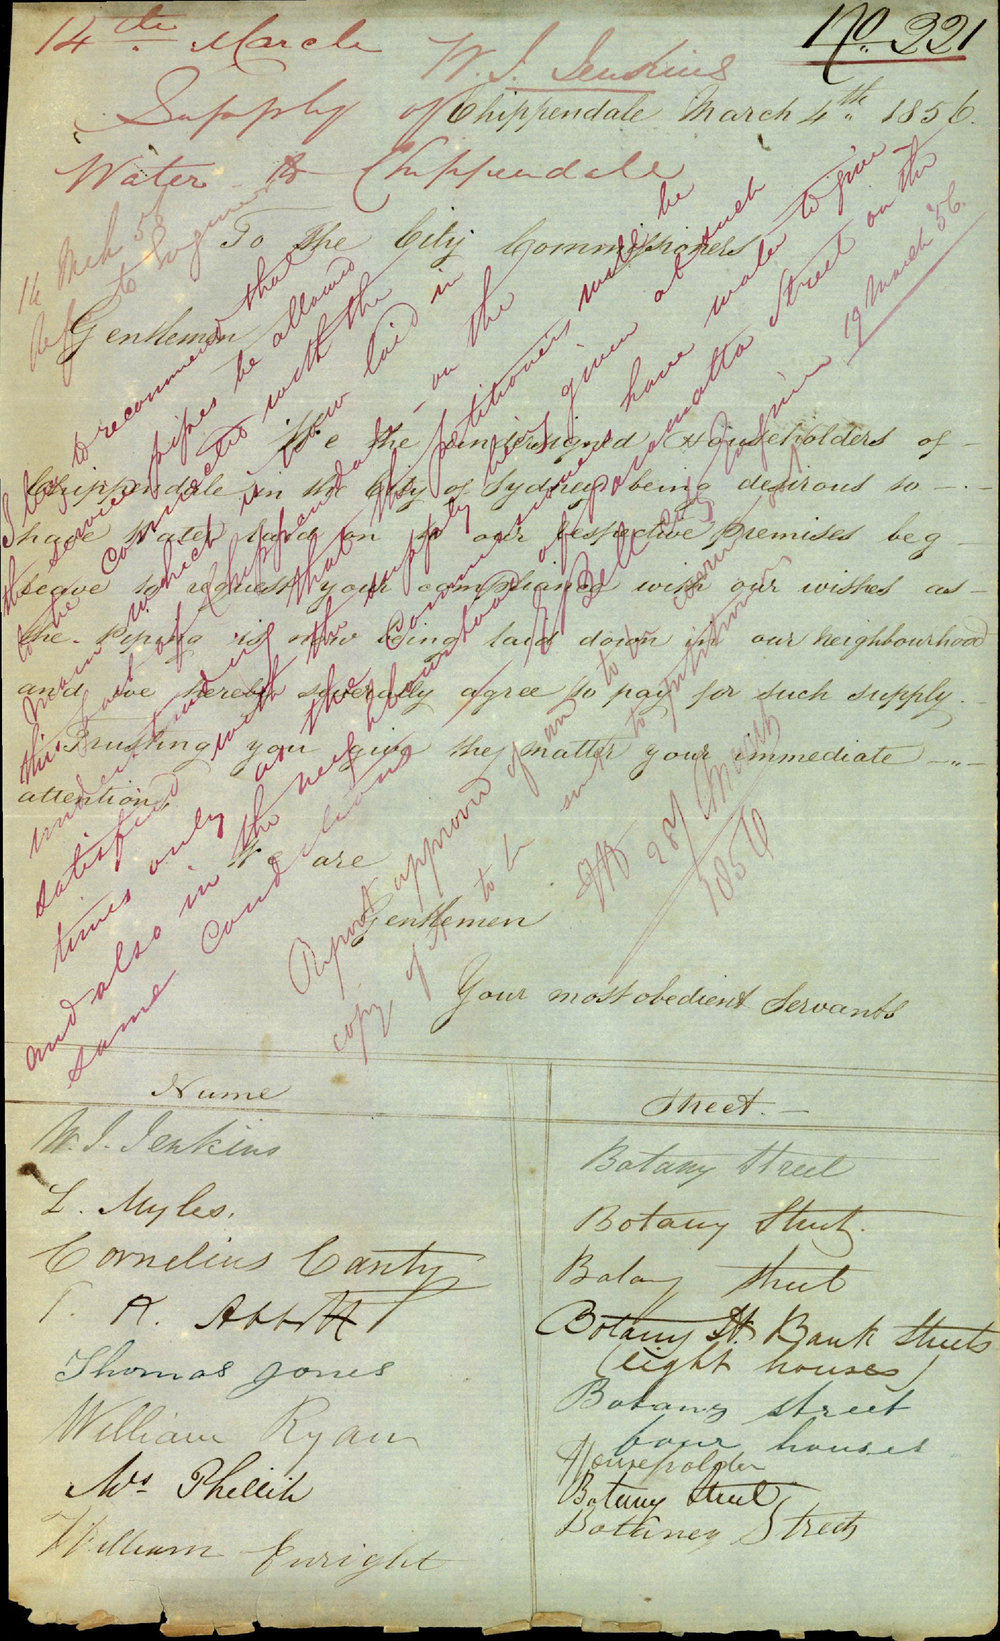 No. 221
14th March
W. J. Jenkins
Supply of
Water to Chippendale
Chippendale March 4th 1856.
To the City Commissioners
14 Mch 56
Refer to Engineer
Gentlemen
We the undersigned Householders of
Chippendale in the City of Sydney being desirous to
have Water laid on to our respective premises beg
leave to request your compliance with our wishes as
the Piping is now being laid down in our neighbourhood
and we hereby severally agree to pay for such supply.
Trusting you give the matter your immediate
attention,
We are
Gentlemen
Your most obedient Servants
I beg to recommend that
the service pipes be allowed
to be connected with the
main which is now laid in
this part of Chippendale on the
understanding that the petitioners will be
satisfied with the supply being given at such
times only as the Commissioners have water to give
and also in the neighbourhood of Parramatta Street on the
same conditions
E Bell City Engineer
19 March 56.
Report approved of and
copy of it to be sent to petitioners
28 March
1856
Name
Street.
W. J. Jenkins
Botany Street
L. Myles.
Botany Street.
Cornelius Canty
Botany Street
R. Abbott
Botany St. Bank Streets
(eight houses)
Thomas Jones
Botany street
four houses
William Ryan
Householder
Botany Street
Mrs Phillik
William Enright
Bottiney Street